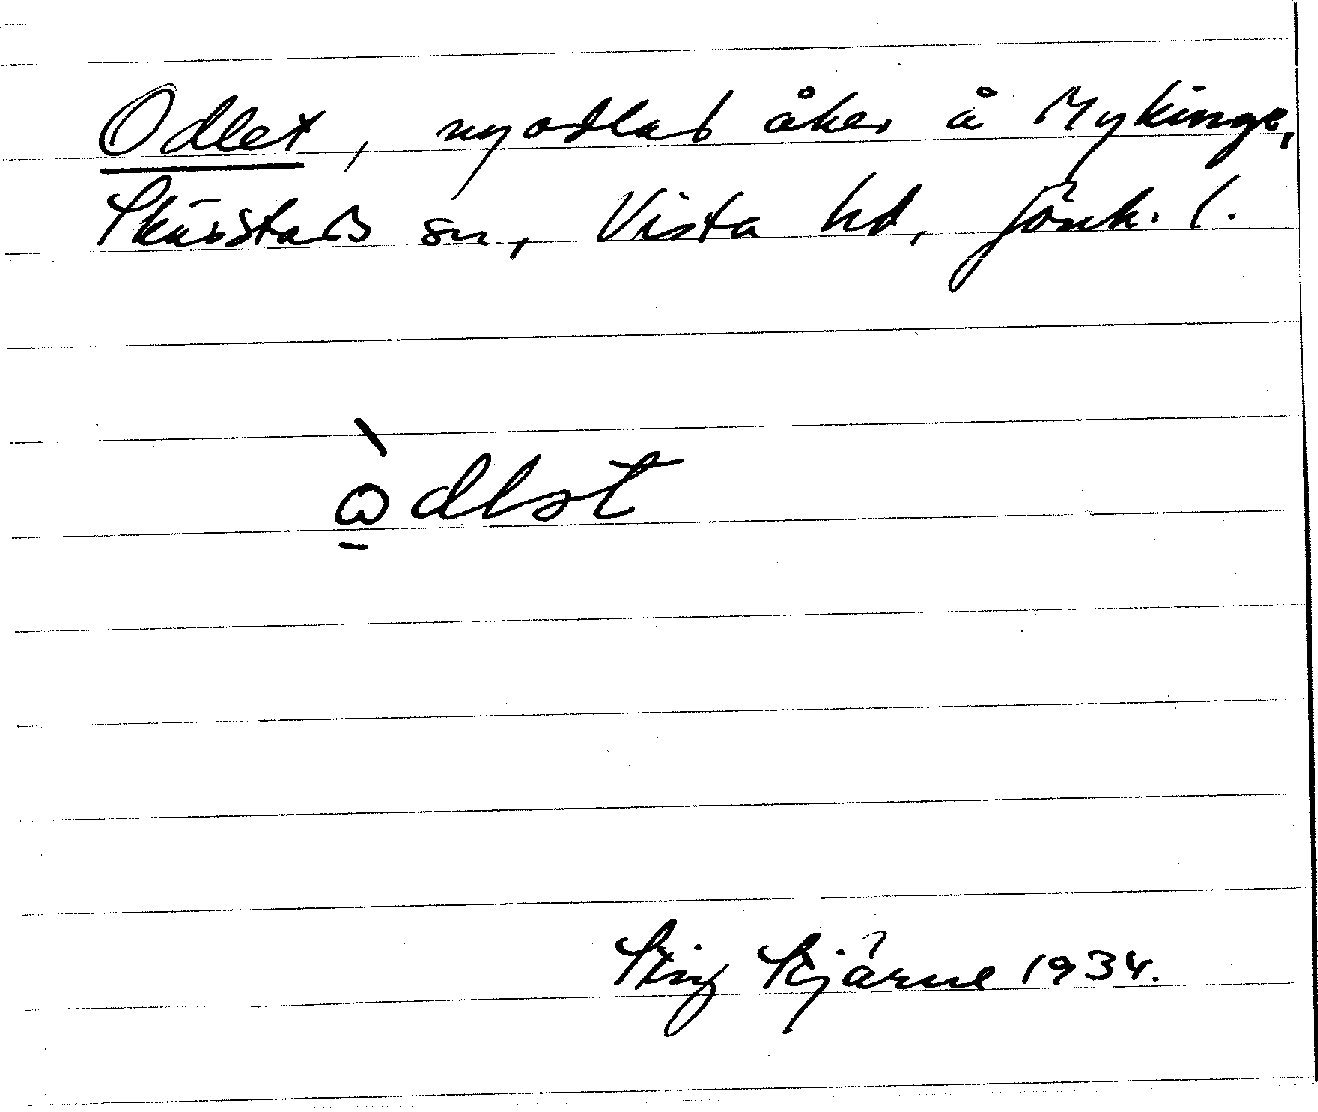 Odlet, nyodlad åker å Mykinge,
Skärstads sn, Vista hd, Jönk. l.
ɷ̀dlət
Stig Stjärne 1934.